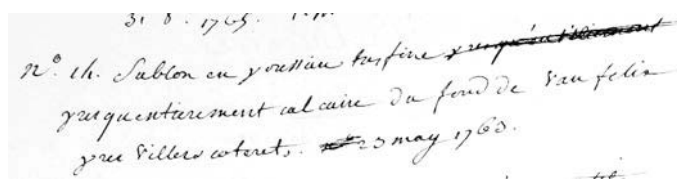 31. 8. 1765.
n°. 14. Sablon en poussiere tresfine presqu'entierement
presquentierement calcaire du fond de Vau felix
pres Villers coterets. 23 may 1763.